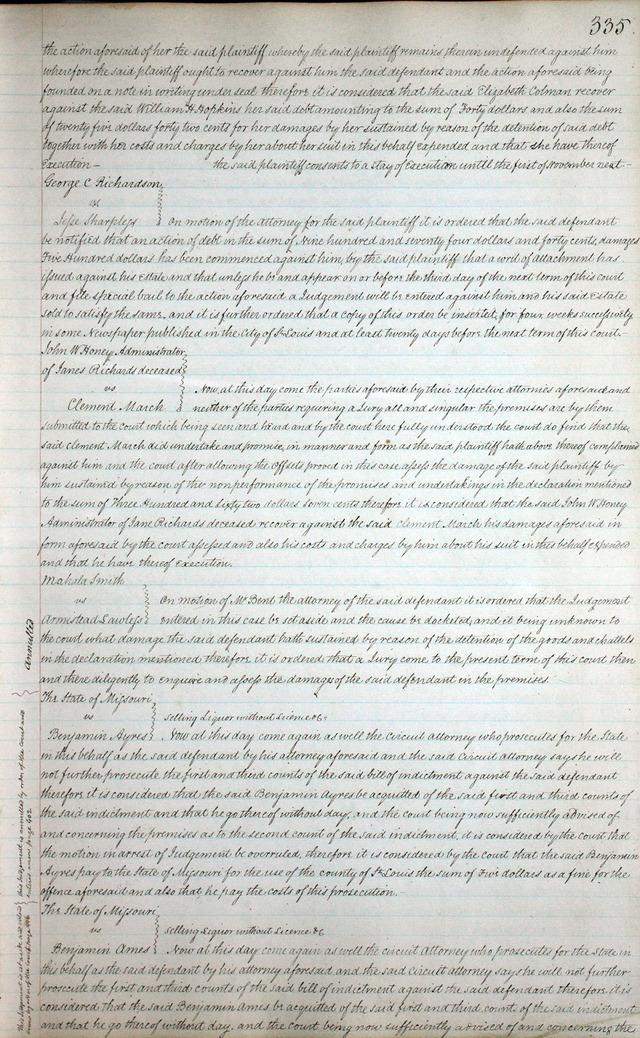 335
the action aforesaid of her the said plaintiff whereby the said plaintiff remains therein undefended against him
wherefore the said plaintiff ought to recover against him the said defendant and the action aforesaid being
founded on a note in writing under seal therefore it is considered that the said Elizabeth Colman recover
against the said William H Hopkins her said debt amounting to the sum of Forty dollars and also the sum
of twenty five dollars forty two cents for her damages by her sustained by reason of the detention of said debt
together with her costs and charges by her about her suit in this behalf expended and that she have thereof
Execution — the said plaintiff consents to a stay of Execution until the first of November next —
George C Richardson
vs
Jesse Sharpless } On motion of the attorney for the said plaintiff it is ordered that the said defendant
be notified that an action of debt in the sum of Nine hundred and seventy four dollars and forty cents, damages
Five Hundred dollars has been commenced against him, by the said plaintiff that a writ of attachment has
issued against his Estate and that unless he be and appear on or before the third day of the next term of this court
and file special bail to the action aforesaid a Judgement will be entered against him and his said Estate
sold to satisfy the same, and it is further ordered that a copy of this order be inserted, for four weeks sucessively
in some Newspaper published in the City of St Louis and at least twenty days before the next term of this court.
John W Honey Administrator
of Janes Richards deceased
vs Now, at this day come the parties aforesaid by their respective attornies aforesaid and
Clement March neither of the parties requiring a Jury all and singular the premises are by them
submitted to the court which being seen and heard and by the court here fully understood the court do find that the
said Clement March did undertake and promise, in manner and form as the said plaintiff hath above thereof complained
against him and the court after allowing the offsets proved in this case assess the damage of the said plaintiff by
him sustained by reason of the non performance of the promises and undertakings in the declaration mentioned
to the sum of Three Hundred and Sixty two dollars Seven cents therefore it is considered that the said John W Honey
Administrator of Jane Richards deceased recover against the said Clement March his damages aforesaid in
form aforesaid by the court assessed and also his costs and charges by him about his suit in this behalf expended
and that he have thereof Execution.
Mahala Smith
vs On motion of Mr Bent the attorney of the said defendant it is ordered that the Judgement
Armstead Lawless entered in this case be set aside and the cause be docketed, and it being unknown to
the court what damage the said defendant hath sustained by reason of the detention of the goods and chattels
in the declaration mentioned therefore it is ordered that a Jury come to the present term of this court then
and there diligently to enquire and assess the damages of the said defendant in the premises.
annulled
The State of Missouri
vs Selling Liquor without Licence &c
Benjamin Ayres Now at this day come again as well the Circuit attorney who prosecutes for the State
in this behalf as the said defendant by his attorney aforesaid and the said Circuit attorney says he will
not further prosecute the first and third counts of the said bill of indictment against the said defendant
therefore it is considered that the said Benjamin Ayres be acquitted of the said first and third counts of
the said indictment and that he go thereof without day, and the court being now sufficiently advised of
and concerning the premises as to the second count of the said indictment, it is considered by the court that
the motion in arrest of Judgement be overruled, therefore it is considered by the court that the said Benjamin
Ayres pay to the State of Missouri for the use of the county of St Louis the sum of Five dollars as a fine for the
offence aforesaid and also that, he pay the costs of this prosecution. —
this Judgement is annulled by order of the Court and
page 402
The State of Missouri
vs Selling Liquor without Licence &c
Benjamin Ames Now at this day come again as well the Circuit Attorney who prosecutes for the State in
this behalf as the said defendant by his attorney aforesaid and the said Circuit attorney says he will not further
prosecute the first and third counts of the said bill of indictment against the said defendant therefore it is
considered that the said Benjamin Ames be acquitted of the said first and third, counts of the said indictment
and that he go thereof without day, and the court being now sufficiently advised of and concerning the